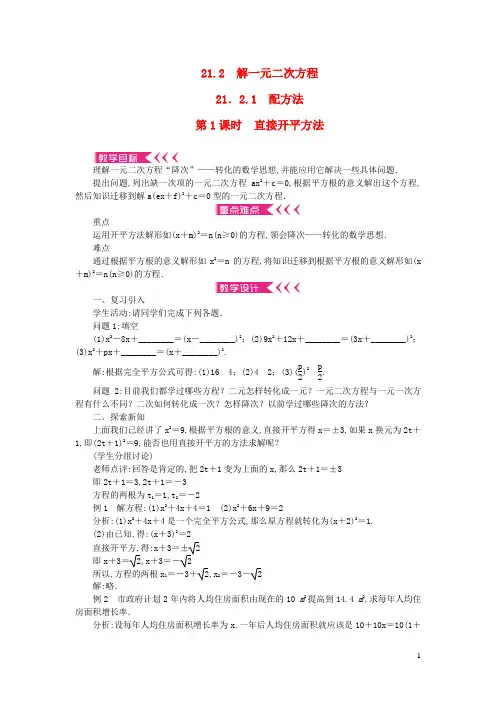 21.2 解一元二次方程
21．2.1 配方法
第1课时 直接开平方法
教学目标
理解一元二次方程“降次”——转化的数学思想,并能应用它解决一些具体问题．
提出问题,列出缺一次项的一元二次方程ax²＋c＝0,根据平方根的意义解出这个方程,
然后知识迁移到解a(ex＋f)²＋c＝0型的一元二次方程．
重点难点
重点
运用开平方法解形如(x＋m)²＝n(n≥0)的方程,领会降次——转化的数学思想．
难点
通过根据平方根的意义解形如x²＝n的方程,将知识迁移到根据平方根的意义解形如(x
＋m)²＝n(n≥0)的方程．
教学设计
一、复习引入
学生活动:请同学们完成下列各题．
问题1:填空
(1)x²－8x＋________＝(x－________)²；(2)9x²＋12x＋________＝(3x＋________)²；
(3)x²＋px＋________＝(x＋________)².
解:根据完全平方公式可得:(1)16 4；(2)4 2；(3)(p/2)² p/2.
问题2:目前我们都学过哪些方程？二元怎样转化成一元？一元二次方程与一元一次方
程有什么不同？二次如何转化成一次？怎样降次？以前学过哪些降次的方法？
二、探索新知
上面我们已经讲了x²＝9,根据平方根的意义,直接开平方得x＝±3,如果x换元为2t＋
1,即(2t＋1)²＝9,能否也用直接开平方的方法求解呢？
(学生分组讨论)
老师点评:回答是肯定的,把2t＋1变为上面的x,那么2t＋1＝±3
即2t＋1＝3,2t＋1＝－3
方程的两根为t₁＝1,t₂＝－2
例1 解方程:(1)x²＋4x＋4＝1 (2)x²＋6x＋9＝2
分析:(1)x²＋4x＋4是一个完全平方公式,那么原方程就转化为(x＋2)²＝1.
(2)由已知,得:(x＋3)²＝2
直接开平方,得:x＋3＝±√2
即x＋3＝√2,x＋3＝－√2
所以,方程的两根x₁＝－3＋√2,x₂＝－3－√2
解:略．
例2 市政府计划2年内将人均住房面积由现在的10 m²提高到14.4 m²,求每年人均住
房面积增长率．
分析:设每年人均住房面积增长率为x.一年后人均住房面积就应该是10＋10x＝10(1＋
1